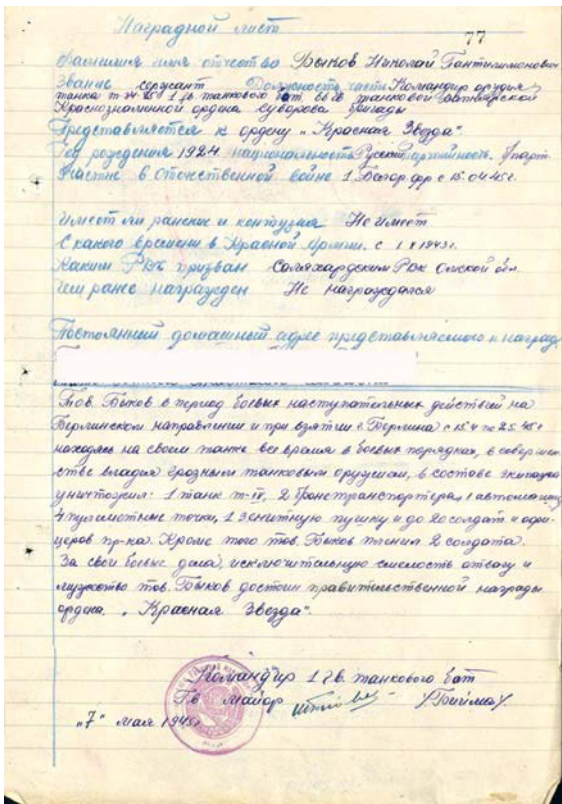 Наградной лист
77
Фамилия имя отчество Быков Николай Пантилимонович
Звание сержант Должность, часть Командир орудия
танка т-34-85 1 гв танкового бат. гв танковой Житомирской
Краснознаменной ордена Суворова бригады
Представляется к ордену „Красная Звезда“.
Год рождения 1924 национальность Русский партийность б/парт.
Участие в Отечественной войне 1 Белор. фр с 15.04.45г.
Имеет ли ранения и контузии Не имеет
С какого времени в Красной Армии. с 1943г.
Каким РВК призван Солехардским РВК Омской обл.
Чем ранее награжден Не награждался
Постоянный домашний адрес представляемого к наград
Тов. Быков в период боевых наступательных действий на
Берлинском направлении и при взятии г. Берлина с 15.4 по 2.5.45г
находясь на своем танке все время в боевых порядках, в совершен-
стве владея грозным танковым оружием, в составе экипажа
уничтожил: 1 танк т-IV, 2 бронетранспортера, 1 автомашину
4 пулеметные точки, 1 зенитную пушку и до 20 солдат и офи-
церов пр-ка. Кроме того тов. Быков пленил 2 солдата.
За свои боевые дела, исключительную смелость отвагу и
мужество тов. Быков достоин правительственной награды
ордена „Красная Звезда“.
Командир 1 гв. танкового бат
Гв майор /Бийма/.
„7“ мая 1945г